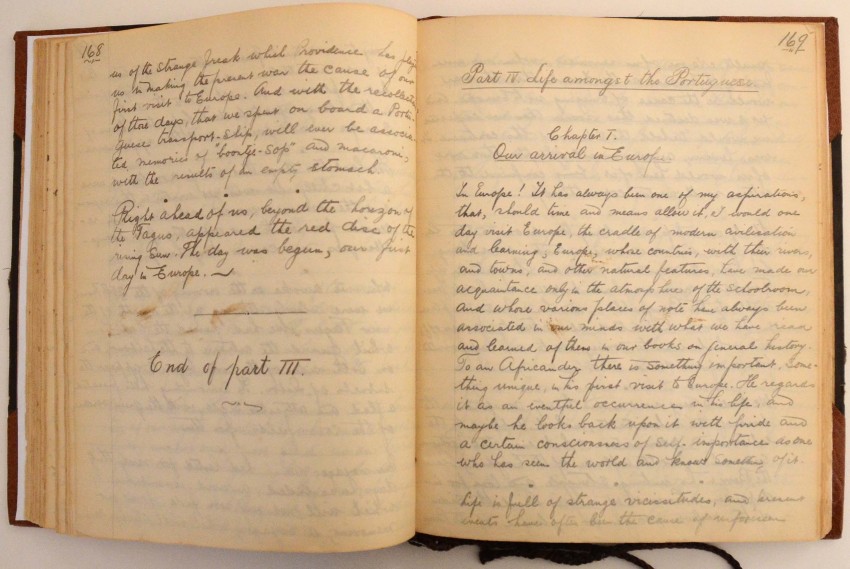 168
us of the strange freak which Providence has play
us in making the present war the cause of our
first visit to Europe. And with the recollect
of those days, that we spent on board a Portu-
guese transport-ship, will ever be associa-
ted memories of "boontje-sop" and macaroni,
with the results of an empty stomach
Right ahead of us, beyond the horizon of
the Tagus, appeared the red disc of the
rising sun. The day was begun, our first
day in Europe.
End of part III.
169
Part IV. Life amongst the Portuguese.
Chapter I.
Our arrival in Europe
In Europe! It has always been one of my aspirations,
that, should time and means allow it, I would one
day visit Europe, the cradle of modern civilisation
and learning; Europe, whose countries, with their rivers,
and towns, and other natural features, have made our
acquaintance only in the atmosphere of the schoolroom,
and whose various places of note have always been
associated in our minds with what we have read
and learned of them in our books on general history.
To an Africander there is something important, some-
thing unique, in his first visit to Europe. He regards
it as an eventful occurrence in his life, and
maybe he looks back upon it with pride and
a certain consciousness of self-importance as one
who has seen the world and knows something of it.
Life is full of strange vicissitudes, and
events have often been the cause of